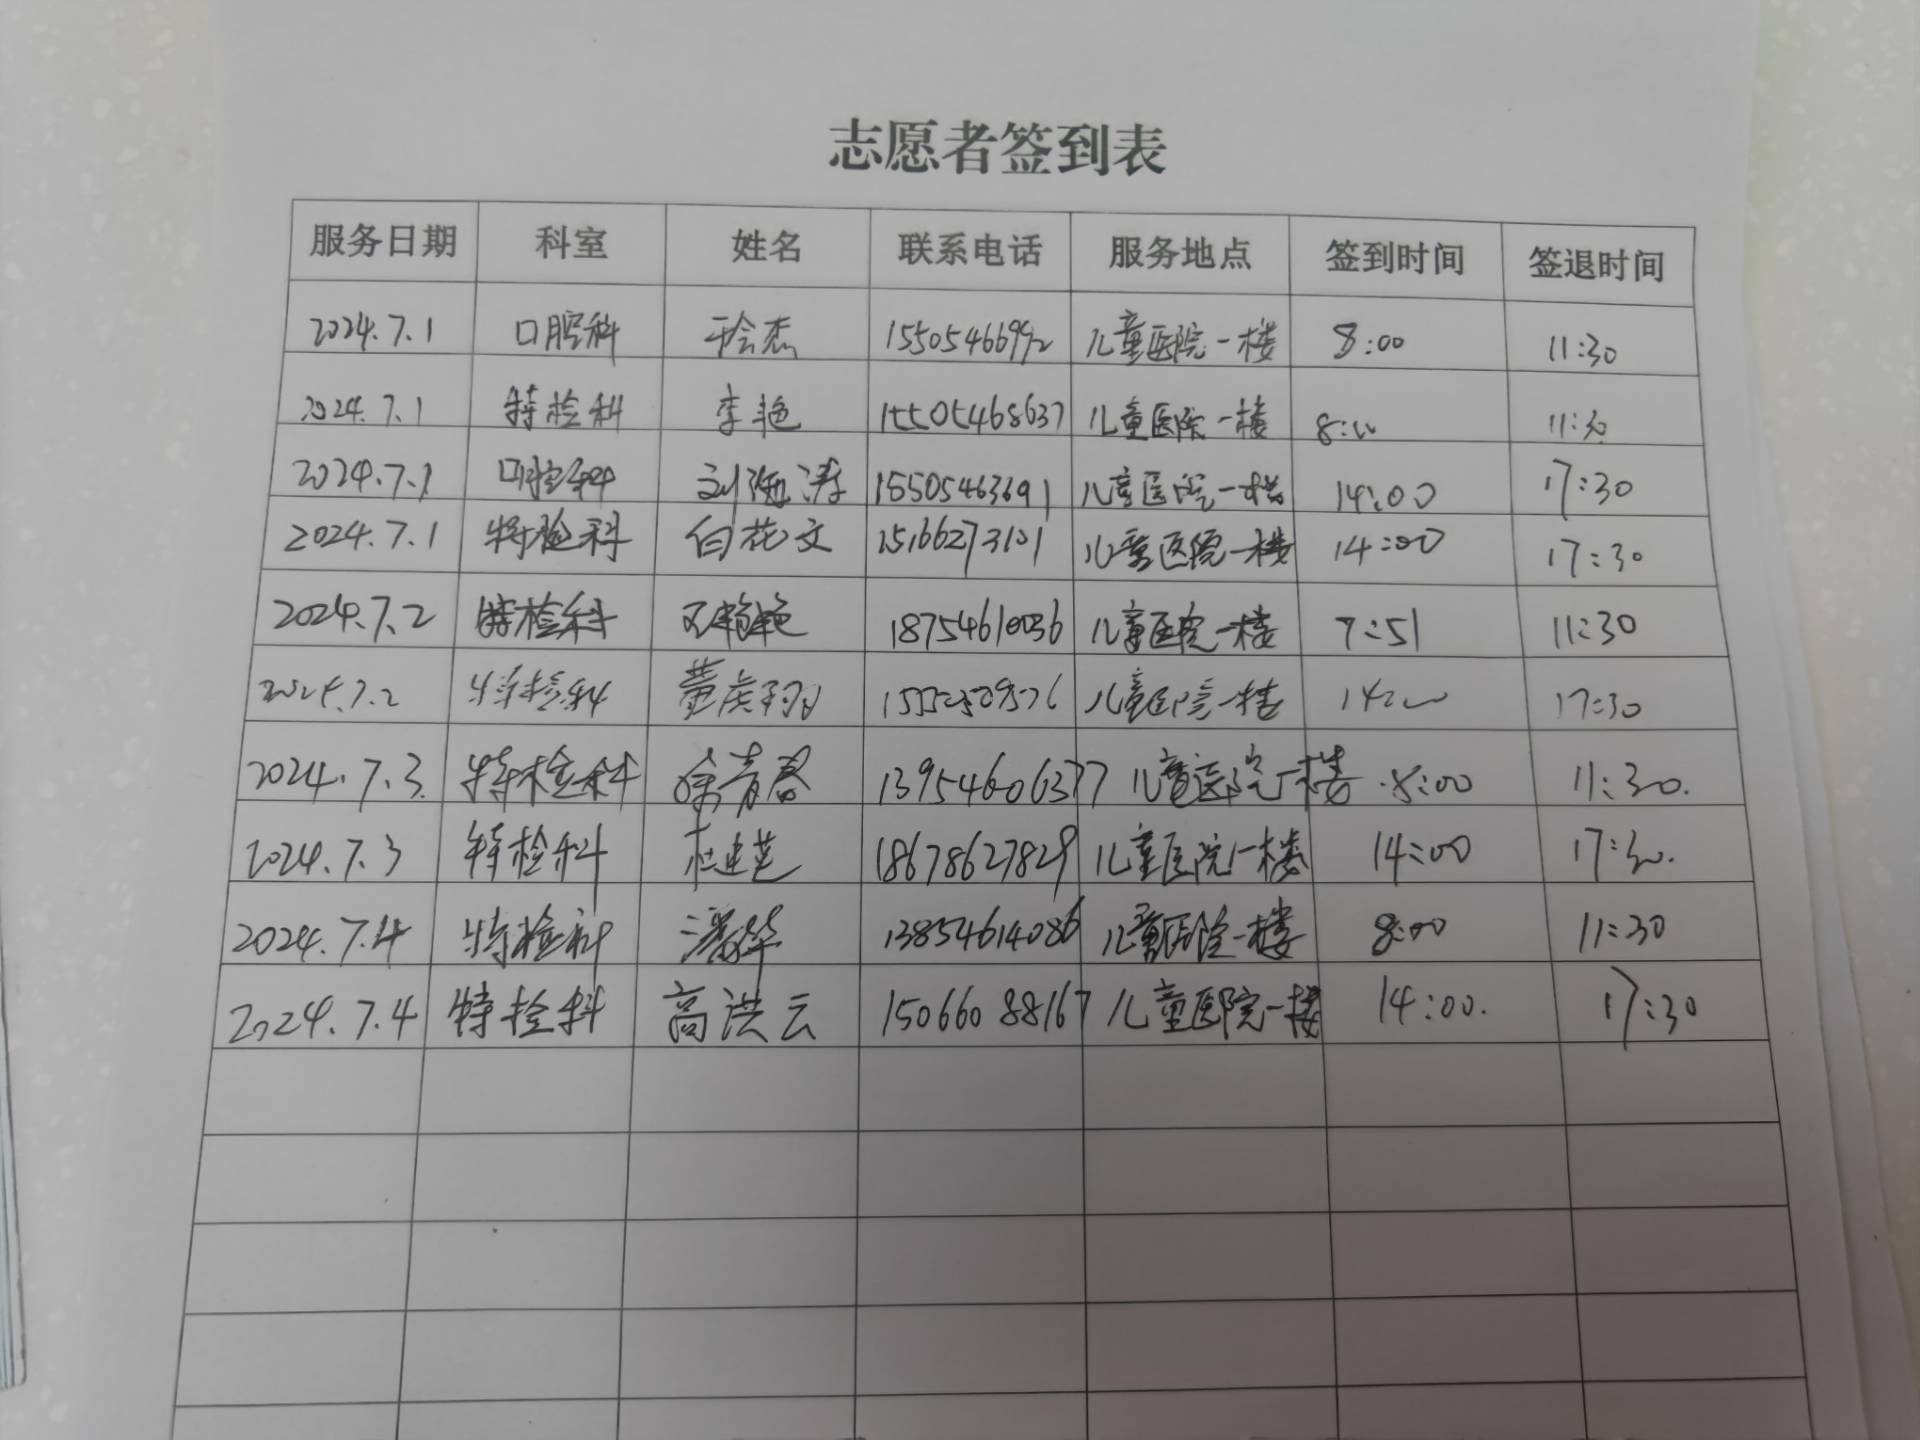 志愿者签到表
服务日期 科室 姓名 联系电话 服务地点 签到时间 签退时间
2024.7.1 口腔科 15505466992 儿童医院一楼 8:00 11:30
2024.7.1 特检科 李艳 15505468637 儿童医院一楼 8:00 11:30
2024.7.1 口腔科 刘海涛 15505463691 儿童医院一楼 14:00 17:30
2024.7.1 特检科 白花文 15166273101 儿童医院一楼 14:00 17:30
2024.7.2 特检科 18754610036 儿童医院一楼 7:51 11:30
2024.7.2 特检科 儿童医院一楼 14:00 17:30
2024.7.3. 特检科 徐青春 13954606377 儿童医院一楼 8:00 11:30.
2024.7.3 特检科 杜建芝 18678627829 儿童医院一楼 14:00 17:30.
2024.7.4 特检科 潘华 13854614086 儿童医院一楼 8:00 11:30
2024.7.4 特检科 高洪云 15066088167 儿童医院一楼 14:00. 17:30